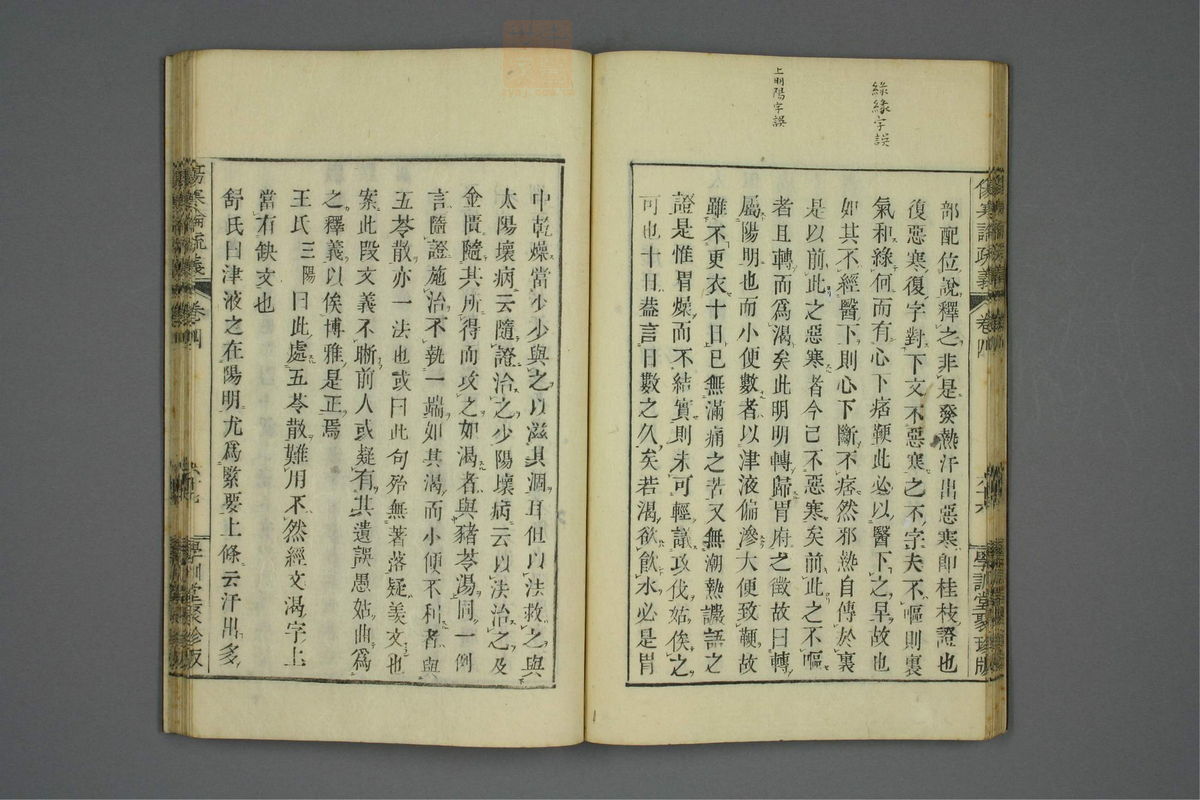 綠緣字誤
上明陽字誤
傷寒論疏義
卷四
學訓堂聚珍版
部配位說釋之非是發熱汗出惡寒卽桂枝證也
復惡寒復字對下文不惡寒之不字夫不嘔則裏
氣和綠何而有心下痞鞕此必以醫下之早故也
如其不經醫下則心下斷不痞然邪熱自傳於裏
是以前此之惡寒者今已不惡寒矣前此之不嘔
者且轉而爲渴矣此明明轉歸胃府之徵故曰轉
屬陽明也而小便數者以津液偏滲大便致鞕故
雖不更衣十日已無滿痛之苦又無潮熱讝語之
證是惟胃燥而不結實則未可輕議攻伐姑俟之
可也十日葢言日數之久矣若渴欲飮水必是胃
中乾燥當少少與之以滋其涸耳但以法救之與
太陽壞病云隨證治之少陽壞病云以法治之及
金匱隨其所得而攻之如渴者與豬苓湯同一例
言隨證施治不執一端如其渴而小便不利者與
五苓散亦一法也或曰此句殆無著落疑羨文也
案此段文義不晣前人或疑有其遺誤愚姑曲爲
之釋義以俟博雅是正焉
王氏三陽曰此處五苓散難用不然經文渴字上
當有缺文也
舒氏曰津液之在陽明尤爲緊要上條云汗出多
傷寒論疏義
卷四
學訓堂聚珍版